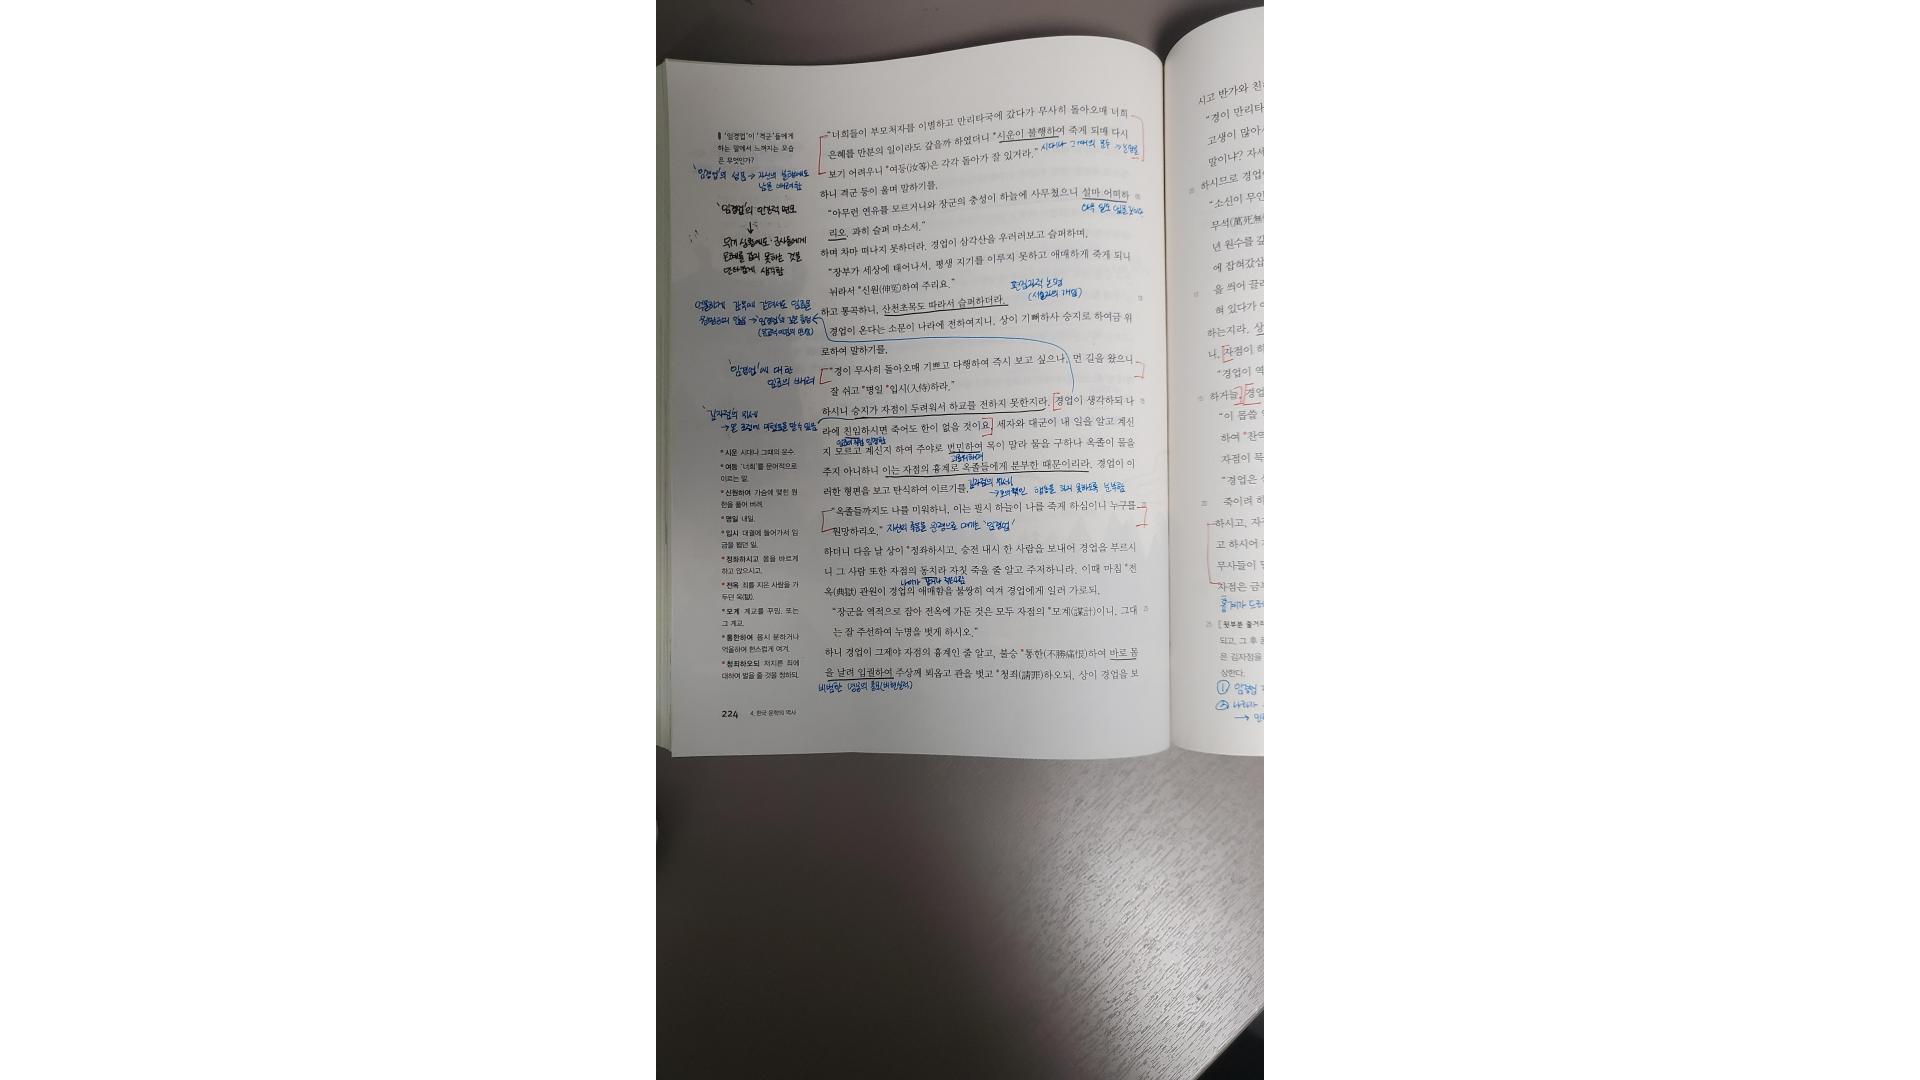 “너희들이 부모처자를 이별하고 만리타국에 갔다가 무사히 돌아오매 너희
은혜를 만분의 일이라도 갚을까 하였더니 *시운이 불행하여 죽게 되매 다시
시대나 그때의 운수
보기 어려우니 *여등(汝等)은 각각 돌아가 잘 있거라.”
하니 격군 등이 울며 말하기를,
“아무런 연유를 모르거니와 장군의 충성이 하늘에 사무쳤으니 설마 어떠하
리오. 과히 슬퍼 마소서.”
하며 차마 떠나지 못하더라. 경업이 삼각산을 우러러보고 슬퍼하며,
“장부가 세상에 태어나서, 평생 지기를 이루지 못하고 애매하게 죽게 되니
뉘라서 *신원(伸冤)하여 주리요.”
편집자적 논평
(서술자의 개입)
하고 통곡하니, 산천초목도 따라서 슬퍼하더라.
경업이 온다는 소문이 나라에 전하여지니, 상이 기뻐하사 승지로 하여금 위
로하여 말하기를,
“경이 무사히 돌아오매 기쁘고 다행하여 즉시 보고 싶으나, 먼 길을 왔으니
잘 쉬고 *명일 *입시(入侍)하라.”
하시니 승지가 자점이 두려워서 하교를 전하지 못한지라. 경업이 생각하되 나
라에 친임하시면 죽어도 한이 없을 것이요, 세자와 대군이 내 일을 알고 계신
지 모르고 계신지 하여 주야로 번민하여 목이 말라 물을 구하나 옥졸이 물을
괴로워하여
주지 아니하니 이는 자점의 흉계로 옥졸들에게 분부한 때문이리라. 경업이 이
러한 형편을 보고 탄식하여 이르기를,
김자점의 위세
“옥졸들까지도 나를 미워하니, 이는 필시 하늘이 나를 죽게 하심이니 누구를
원망하리오.”
자신의 죽음을 운명으로 여기는 '임경업'
하더니 다음 날 상이 *정좌하시고, 승전 내시 한 사람을 보내어 경업을 부르시
니 그 사람 또한 자점의 동치라 자칫 죽을 줄 알고 주저하니라. 이때 마침 *전
옥(典獄) 관원이 경업의 애매함을 불쌍히 여겨 경업에게 일러 가로되,
“장군을 역적으로 잡아 전옥에 가둔 것은 모두 자점의 *모계(謀計)이니, 그대
는 잘 주선하여 누명을 벗게 하시오.”
하니 경업이 그제야 자점의 흉계인 줄 알고, 불승 *통한(不勝痛恨)하여 바로 몸
을 날려 입궐하여 주상께 뵈옵고 관을 벗고 *청죄(請罪)하오되, 상이 경업을 보
비범한 영웅의 풍모(비현실적)
'임경업'이 '격군'들에게
하는 말에서 느껴지는 모습
은 무엇인가?
'임경업'의 성품 → 자신의 불행에도
남을 배려함
'임경업'의 인간적 면모
↓
위기 상황에도 군사들에게
은혜를 갚지 못하는 것을
안타깝게 생각함
억울하게 감옥에 갇혀서도 임금을
'임경업'에 대한
임금의 배려
'김자점'의 위세
*시운 시대나 그때의 운수.
*여등 '너희'를 문어적으로
이르는 말.
*신원하여 가슴에 맺힌 원
한을 풀어 버려.
*명일 내일.
*입시 대궐에 들어가서 임
금을 뵙던 일.
*정좌하시고 몸을 바르게
하고 앉으시고.
*전옥 죄를 지은 사람을 가
두던 옥(獄).
*모계 계교를 꾸밈. 또는
그 계교.
*통한하여 몹시 분하거나
억울하여 한스럽게 여겨.
*청죄하오되 저지른 죄에
대하여 벌을 줄 것을 청하되.
224 4. 한국 문학의 역사
시고 반가와 친
“경이 만리타
고생이 많아
말이냐? 자세
하시므로 경업이
“소신이 무인
무석(萬死無
년 원수를 갚
에 잡혀갔삽
을 씌어 끌려
혀 있다가 이
하는지라. 상
니, 자점이 하
“경업이 역
하거늘, 경업
“이 몹쓸
하여 *찬역
자점이 묵
“경업은
죽이려 하
하시고, 자
고 하시어
무사들이
자점은 금
흉계가 드러
[뒷부분 줄거리
되고, 그 후
은 김자점을
상한다.
① 임경업
② 나라가